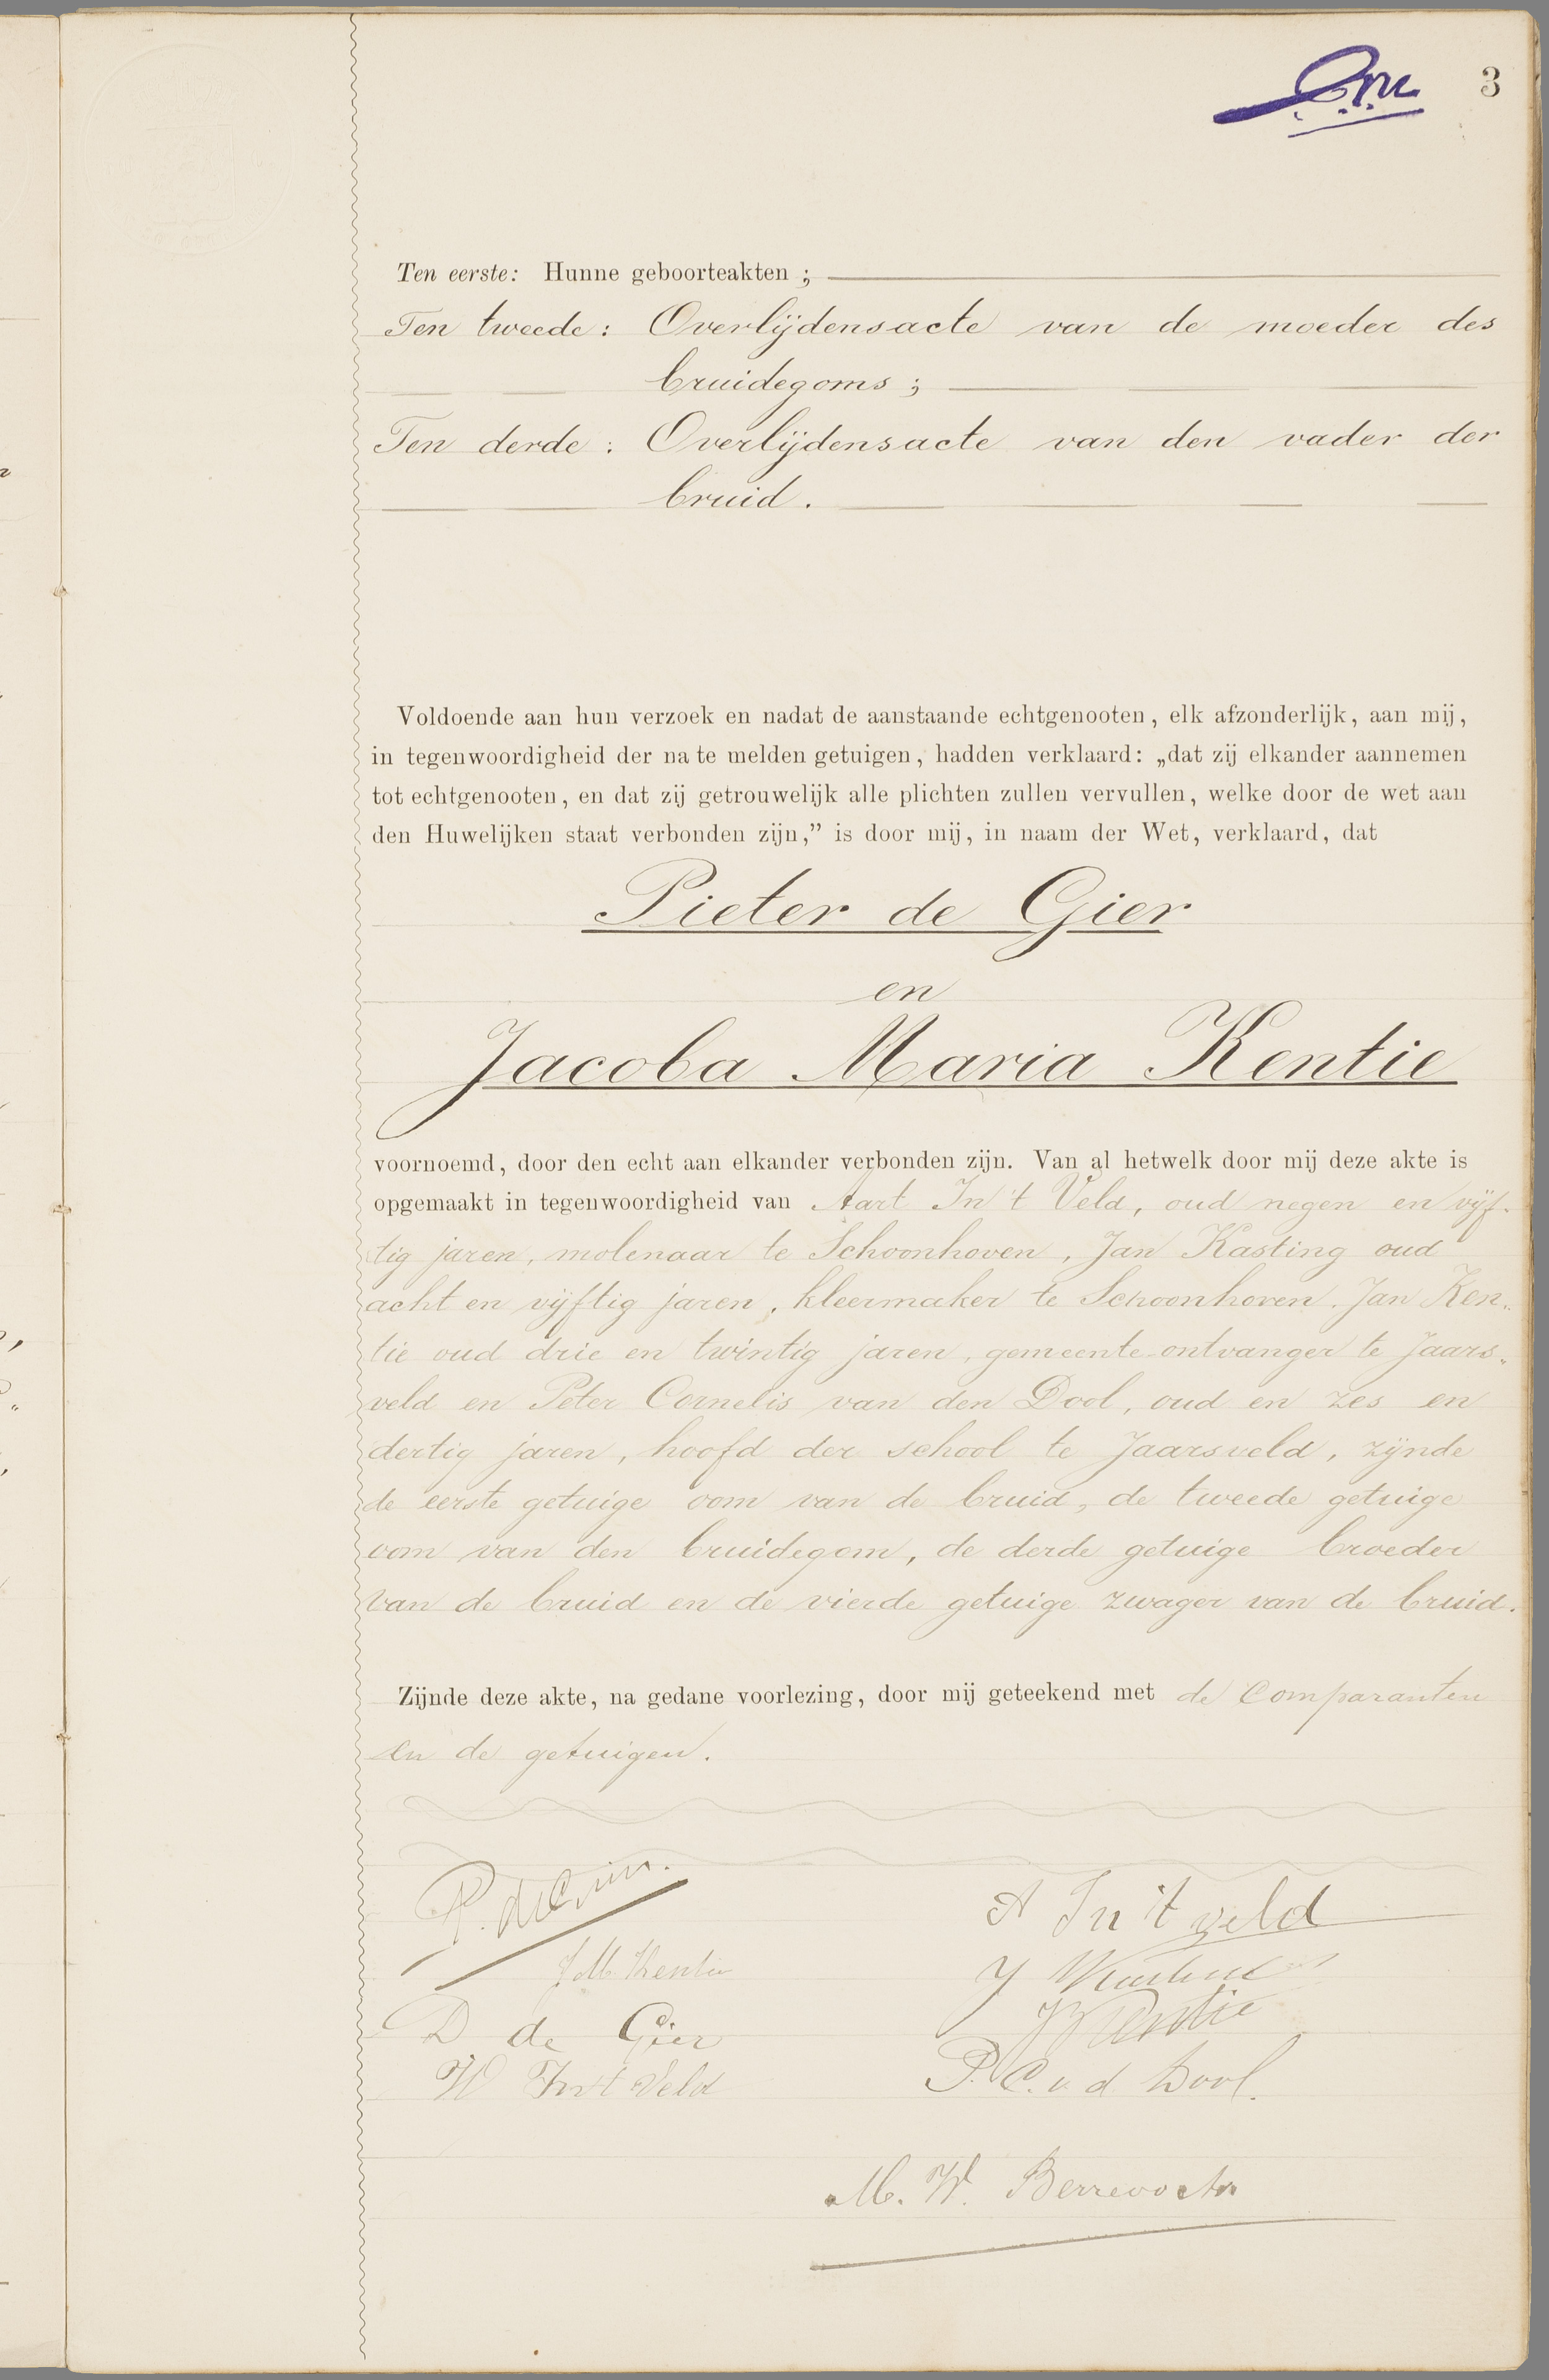 3
Ten eerste: Hunne geboorteakten;
Ten tweede: Overlijdensacte van de moeder des
bruidegoms;
Ten derde: Overlijdensacte van den vader der
bruid.
Voldoende aan hun verzoek en nadat de aanstaande echtgenooten, elk afzonderlijk, aan mij,
in tegenwoordigheid der na te melden getuigen, hadden verklaard: „dat zij elkander aannemen
tot echtgenooten, en dat zij getrouwelijk alle plichten zullen vervullen, welke door de wet aan
den Huwelijken staat verbonden zijn,” is door mij, in naam der Wet, verklaard, dat
Pieter de Gier
en
Jacoba Maria Kentie
voornoemd, door den echt aan elkander verbonden zijn. Van al hetwelk door mij deze akte is
opgemaakt in tegenwoordigheid van Aart In 't Veld, oud negen en vijf-
tig jaren, molenaar te Schoonhoven, Jan Kasting oud
acht en vijftig jaren, kleermaker te Schoonhoven, Jan Ken„
tie oud drie en twintig jaren, gemeente-ontvanger te Jaars„
veld en Peter Cornelis van den Dool, oud en zes en
dertig jaren, hoofd der school te Jaarsveld, zijnde
de eerste getuige oom van de bruid, de tweede getuige
oom van den bruidegom, de derde getuige broeder
van de bruid en de vierde getuige zwager van de bruid.
Zijnde deze akte, na gedane voorlezing, door mij geteekend met de Comparanten
en de getuigen.
P. de Gier.
A In 't veld
J M Kentie
J
D de Gier
J Kentie
W In 't Veld
P. C. v. d Dool.
M. W.